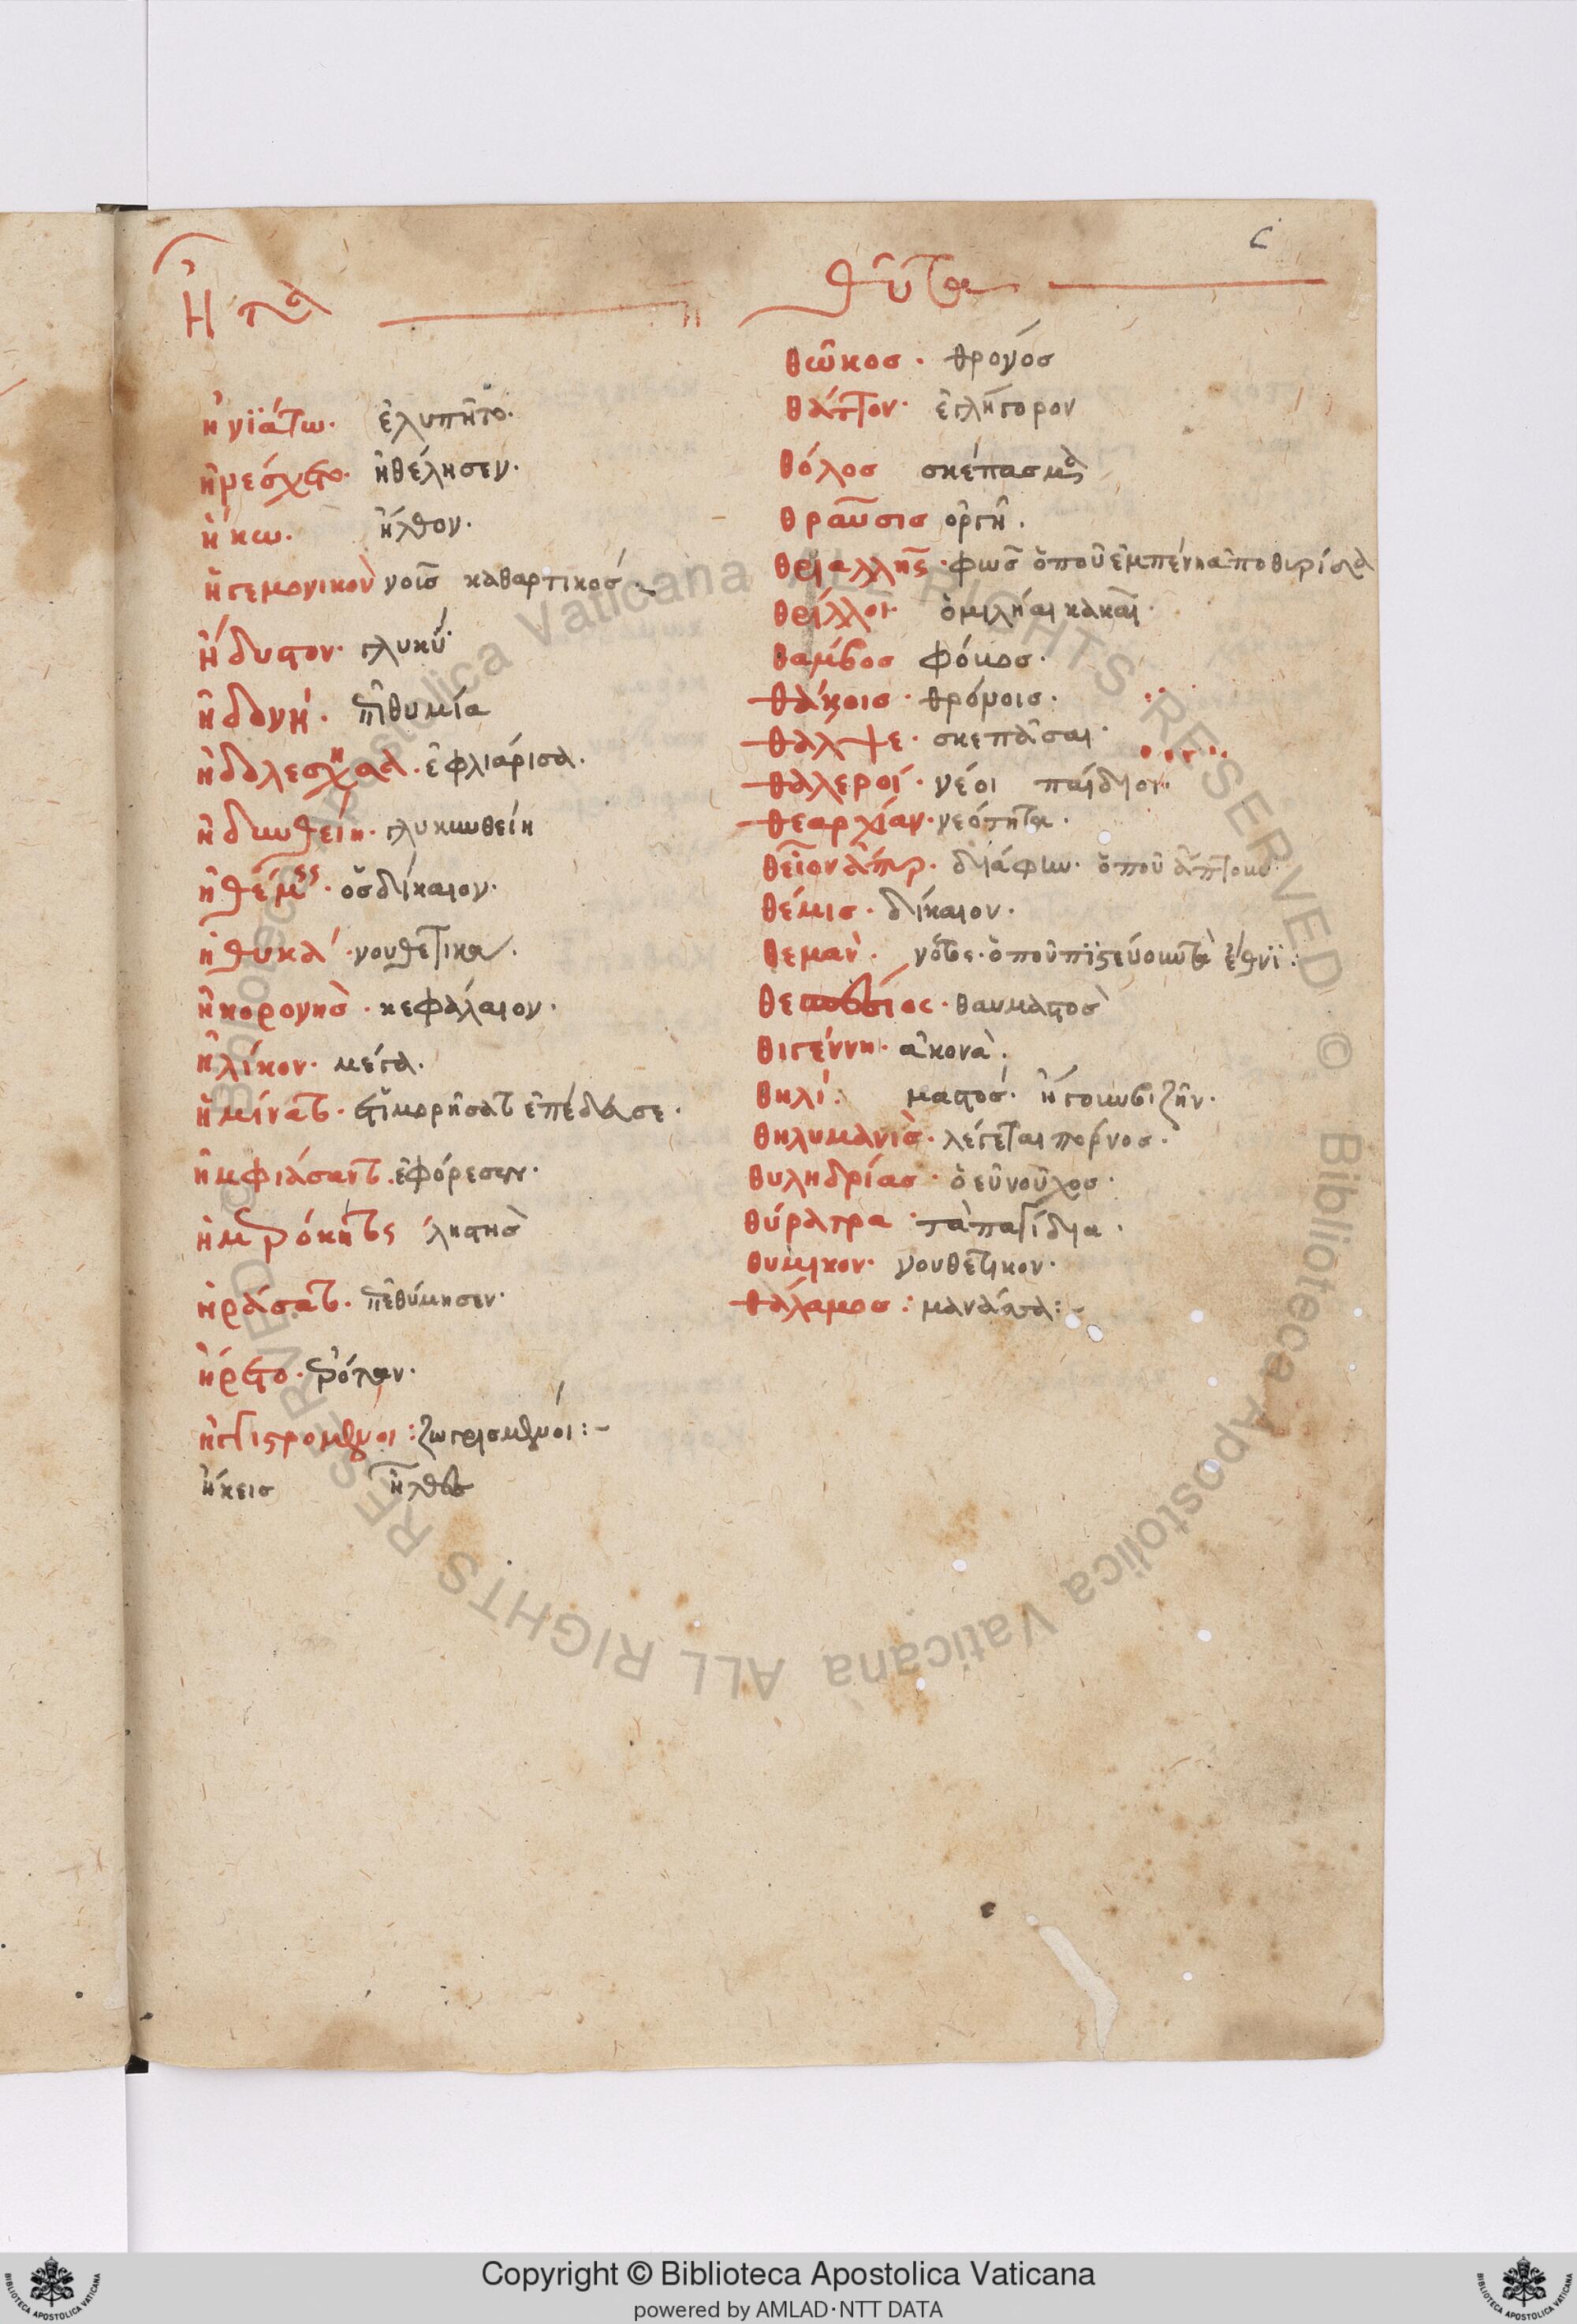 ἠνϊάτω· ἐλυπῆτο·
ἠρέσχετο· ἠθέλησεν·
ἠκω. ἦλθον.
ἡγεμονικὸν νοῖς καθαρτικός.
ἥδυστον· γλυκὺ
ἡδονή. ἐπιθυμία
ἠδολεσχησα. ἐφλιάρισα.
ἡδυνθείη· γλυκυνθείη
οὐ δίκαιον.
ἠθυκά· νουθετικα
κεφάλαιον.
ἠλίκον· μέγα.
ἠμύνατο. ἐτιμορήσατο ἐπέδωσε.
ἠμφιάσαντο. ἐφόρεσαν.
ληστής
ἠράσατο. ἐπεθύμησεν·
ἤρετο·
ἠγκιστρομένοι: ζωγρισμένοι:-
ἤκεις ἦλθες
θῶκος. θρονός
θάττον· ἐγλήγορον
θόλος σκέπασμα
θραῦσις ὀργή.
θριαλλῆς·φῶς ὁποῦ ἐμπένη
θρίλλοι· ὁμιλήαι κακαί.
θαμβος φόβος.
θάκοις. θρόνοις.
θάλψε. σκεπᾶσαι.
θαλεροί. νέοι παίδιοι.
θεαρχίαν· νεότητα.
θεῖον ἄπυρ. διάφιν. ὁποῦ ἅπτουν
θέμις. δίκαιον.
θεμαν. νότος. ὁποῦ πιστεύουν τὰ ἔθνϊ:
θαυμαστὸς
θιγέννη. ἀκονὰ.
θηλὶ: μαστός. ἢ τὸ βυζὴν.
θηλυμανὴς. λέγεται πόρνος.
θυληδρίας. ὁ εὐνοῦχος.
θύρατρα. τὰ πατίδια.
θυμικον. νουθετικον.
θάλαμος:
Copyright © Biblioteca Apostolica Vaticana
powered by AMLAD·NTT DATA